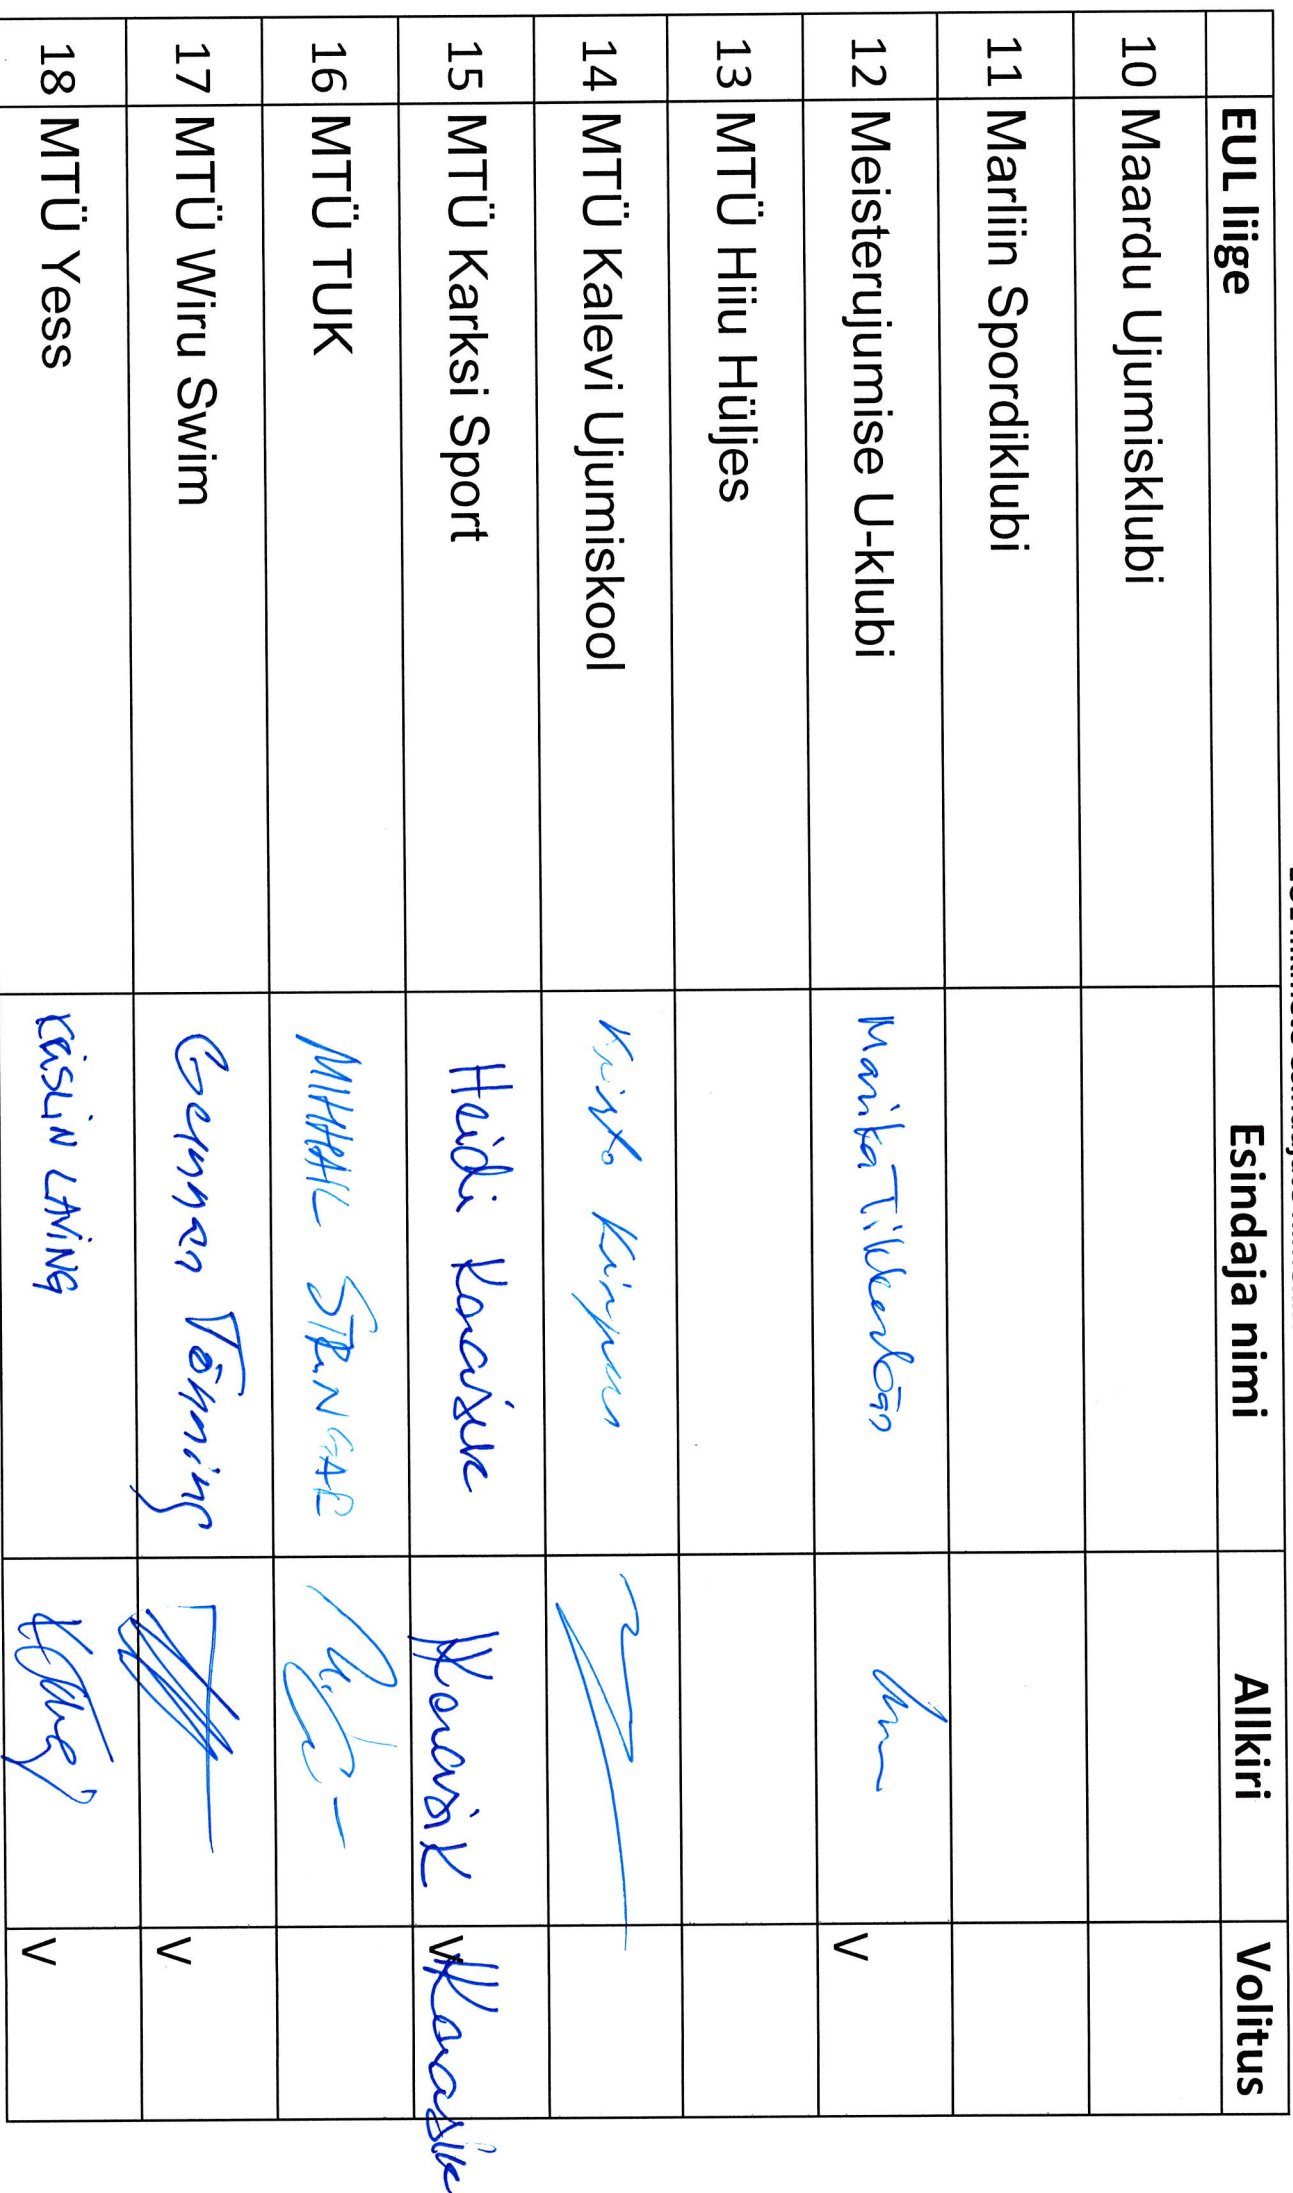 EUL liige Esindaja nimi Allkiri Volitus
10 Maardu Ujumisklubi
11 Marliin Spordiklubi
12 Meisterujumise U-klubi Marika V
13 MTÜ Hiiu Hüljes
14 MTÜ Kalevi Ujumiskool Kristo
15 MTÜ Karksi Sport Heidi Karasik HKarasik V HKarasik
16 MTÜ TUK MIHHAIL STRINGAR
17 MTÜ Wiru Swim German Tõhning V
18 MTÜ Yess KAISLIN LAVING V